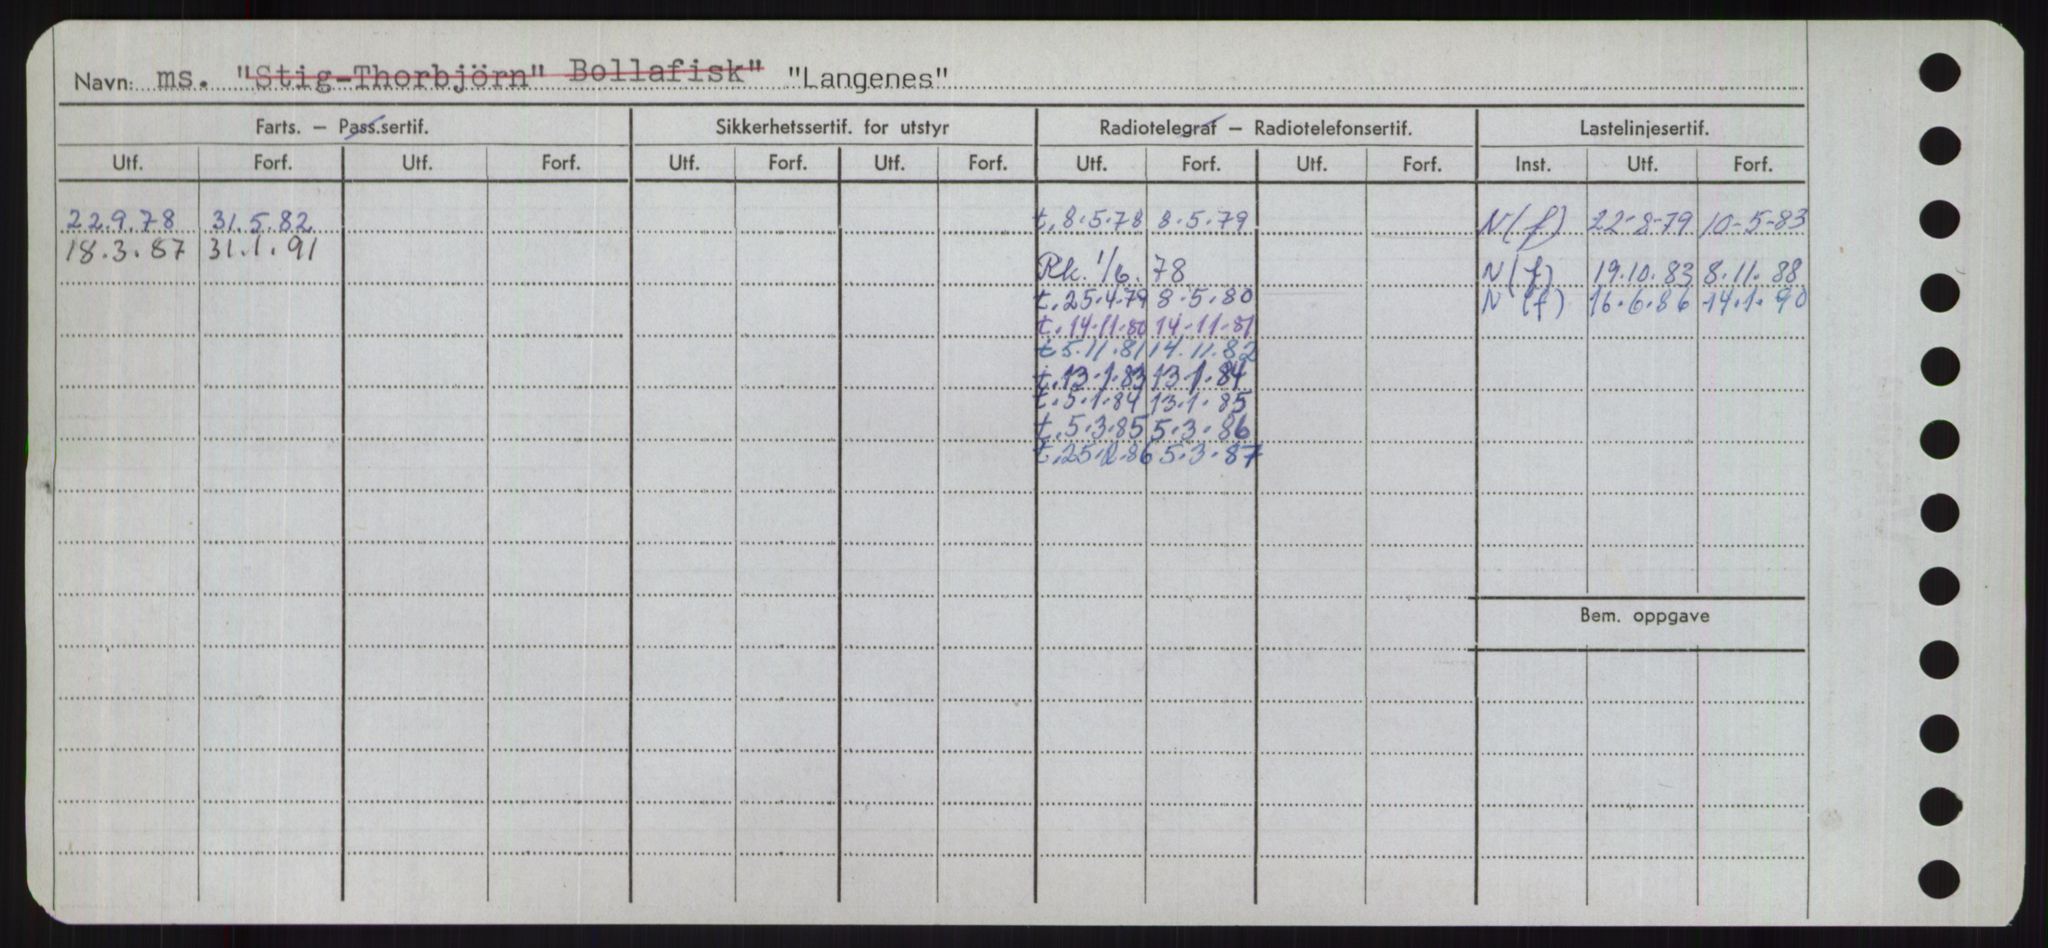 Navn: ms. "Stig-Thorbjörn" Bollafisk" "Langenes"
Farts. – Pass.sertif. Sikkerhetssertif. for utstyr Radiotelegraf – Radiotelefonsertif. Lastelinjesertif.
Utf. Forf. Utf. Forf. Utf. Forf. Utf. Forf. Utf. Forf. Utf. Forf. Inst. Utf. Forf.
22.9.78 31.5.82 t. 8.5.78 8.5.79 N(f) 22-8-79 10-5-83
18.3.87 31.1.91
Rk. 1/6. 78 N(f) 19.10.83 8.11.88
t. 25.4.79 8.5.80 N(f) 16.6.86 14.1.90
t. 14.11.80 14.11.81
t 5.11.81 14.11.82
t. 13.1.83 13.1.84
t. 5.1.84 13.1.85
t. 5.3.85 5.3.86
t. 25.2.86 5.3.87
Bem. oppgave